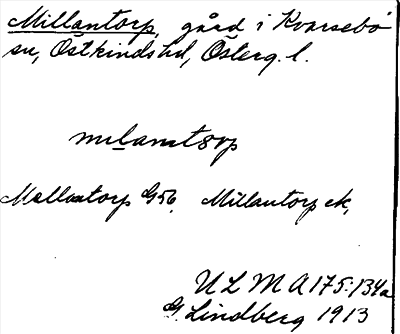 Millantorp, gård i Kvarsebo
sn, Östkinds hd, Österg. l.
milantorp
Mellantorp G56, Millantorp ek,
ULMA 175:134a
G. Lindberg 1913